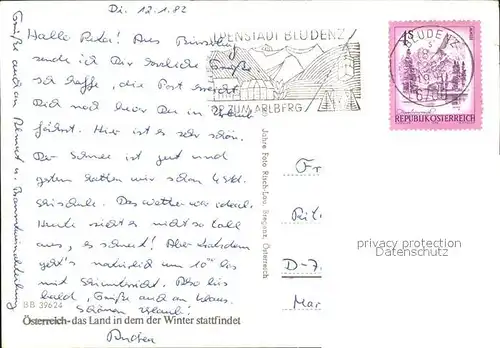 Di. 12.1.82
Hallo Rita! Aus
sende ich Dir herzliche Grüße
ich hoffe, die Post erreicht
Dich noch bevor Du in Urlaub
fährst. Hier ist es sehr schön.
Der Schnee ist gut und
gestern hatten wir schon 4 Std.
Skischule. Das Wetter war ideal.
Heute sieht es nicht so toll
aus, es schneit! Aber trotzdem
geht's natürlich um 10⁰⁰ los
mit Skiunterricht. Also bis
bald, Grüße auch an Klaus.
Schönen Urlaub!
Grüße auch an
u.
BB 39624
Österreich - das Land in dem der Winter stattfindet
PENSTADT BLUDENZ
ZUM ARLBERG
BLUDENZ
6700
4S
REPUBLIK ÖSTERREICH
Jahre Foto Risch-Lau, Bregenz, Österreich
Fr
Rit
D-7
Mar
privacy protection
Datenschutz